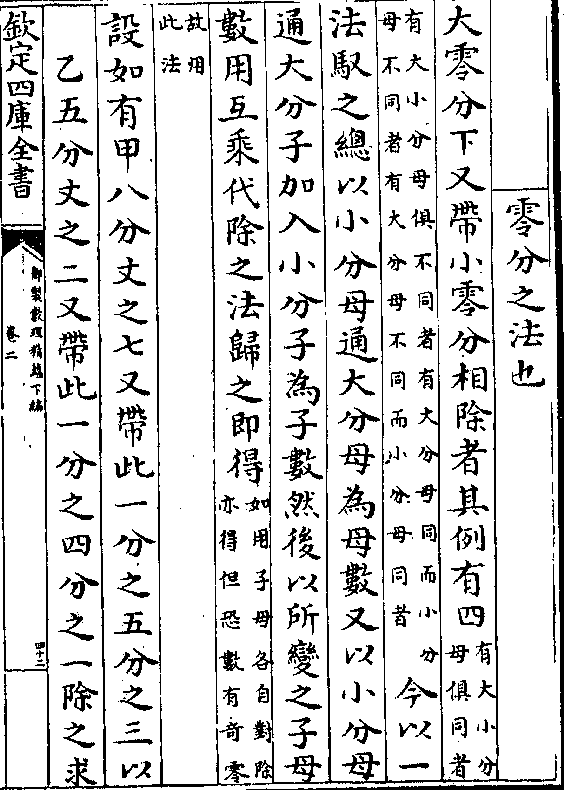 零分之法也
大零分下又帶小零分相除者其例有四有大小分母俱同者
有大小分母俱不同者有大分母同而小分母不同者有大分母不同而小分母同者今以一
法馭之總以小分母通大分母為母數又以小分母
通大分子加入小分子為子數然後以所變之子母
數用互乘代除之法歸之即得如用子母各自對除亦得但恐數有奇零
故用此法
設如有甲八分丈之七又帶此一分之五分之三以
乙五分丈之二又帶此一分之四分之一除之求
欽定四庫全書
御製數理精蘊下編
卷二
四十二